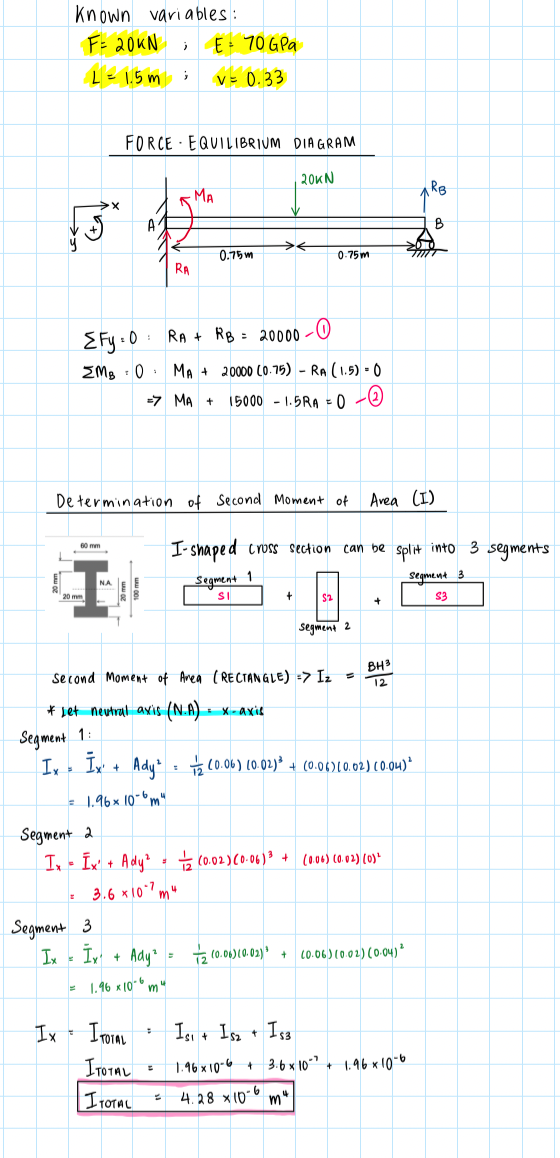 Known variables:
F = 20kN ; E = 70 GPa
L = 1.5m ; v = 0.33
FORCE-EQUILIBRIUM DIAGRAM
20kN
RB
MA
x
A
B
+
y
0.75m
0.75m
RA
ΣFy = 0 : RA + RB = 20000 - ①
ΣMB = 0 : MA + 20000 (0.75) - RA (1.5) = 0
=> MA + 15000 - 1.5RA = 0 - ②
Determination of Second Moment of Area (I)
I-shaped cross section can be split into 3 segments
60 mm
20 mm
N.A.
20 mm
20 mm
100 mm
segment 1
S1
+
S2
segment 2
+
segment 3
S3
Second Moment of Area (RECTANGLE) => Iz = BH³/12
* Let neutral axis (N.A) = x-axis
Segment 1:
Ix = Īx' + Ady² = 1/12 (0.06)(0.02)³ + (0.06)(0.02)(0.04)²
= 1.96 × 10⁻⁶ m⁴
Segment 2
Ix = Īx' + Ady² = 1/12 (0.02)(0.06)³ + (0.06)(0.02)(0)²
= 3.6 × 10⁻⁷ m⁴
Segment 3
Ix = Īx' + Ady² = 1/12 (0.06)(0.02)³ + (0.06)(0.02)(0.04)²
= 1.96 × 10⁻⁶ m⁴
Ix = ITOTAL = IS1 + IS2 + IS3
ITOTAL = 1.96 × 10⁻⁶ + 3.6 × 10⁻⁷ + 1.96 × 10⁻⁶
ITOTAL = 4.28 × 10⁻⁶ m⁴